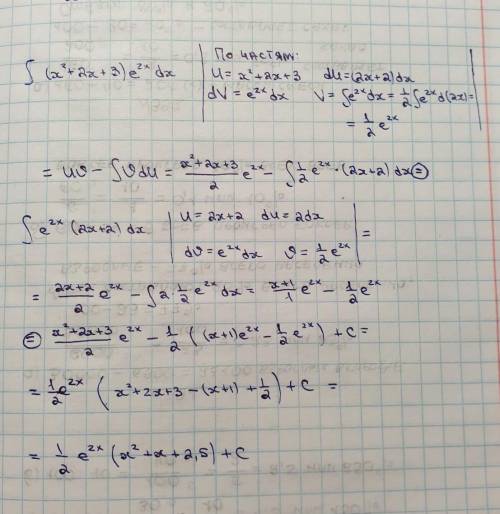 ∫ (x²+2x+3) e^{2x} dx | По частям:
u = x²+2x+3 du = (2x+2)dx
dV = e^{2x} dx V = ∫e^{2x}dx = 1/2 ∫e^{2x} d(2x) =
= 1/2 e^{2x}
= uv - ∫vdu = (x²+2x+3)/2 e^{2x} - ∫ 1/2 e^{2x} · (2x+2) dx ⊜
∫ e^{2x} (2x+2) dx | u = 2x+2 du = 2dx
dv = e^{2x} dx v = 1/2 e^{2x} | =
= (2x+2)/2 e^{2x} - ∫ 2 · 1/2 e^{2x} dx = (x+1)/1 e^{2x} - 1/2 e^{2x}
⊜ (x²+2x+3)/2 e^{2x} - 1/2 ((x+1)e^{2x} - 1/2 e^{2x}) + C =
= 1/2 e^{2x} (x²+2x+3 - (x+1) + 1/2) + C =
= 1/2 e^{2x} (x²+x+2,5) + C